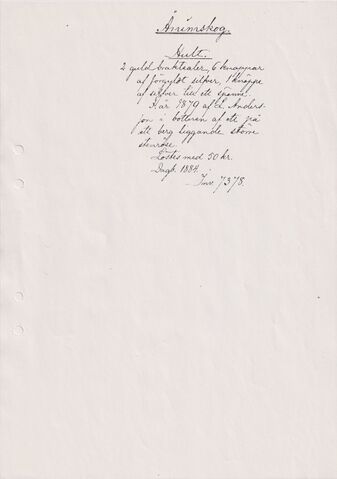 Ånimskog.
Hult.
2 guldbrakteater, 6 knappar
af förgyldt silfver, 1 knäppe
af silfver till ett spänne.
H. år 1879 af A. Anders-
son i bottnen af ett på
ett berg liggande större
stenröse.
Löstes med 50 kr.
Dagb. 1884.
Inv. 7378.